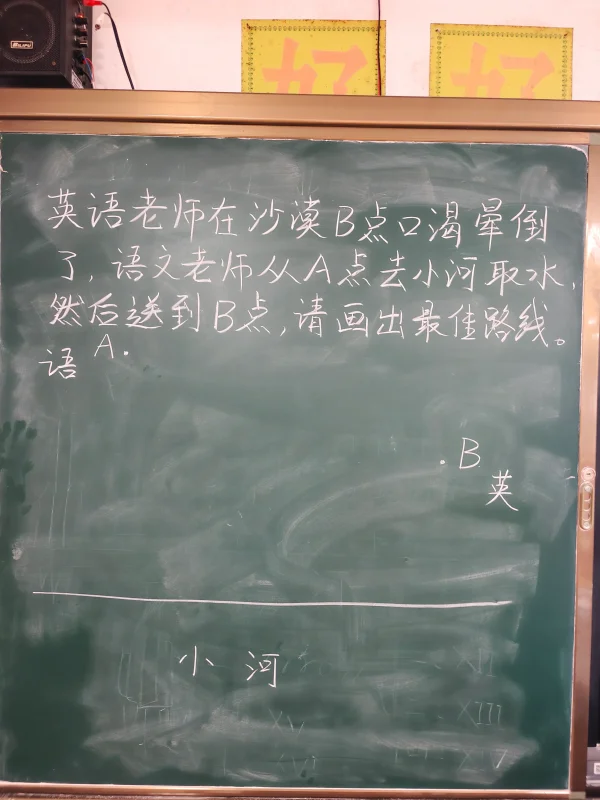 好 好
英语老师在沙漠B点口渴晕倒
了,语文老师从A点去小河取水,
然后送到B点,请画出最佳路线。
语 A.
.B
英
小河
XIII